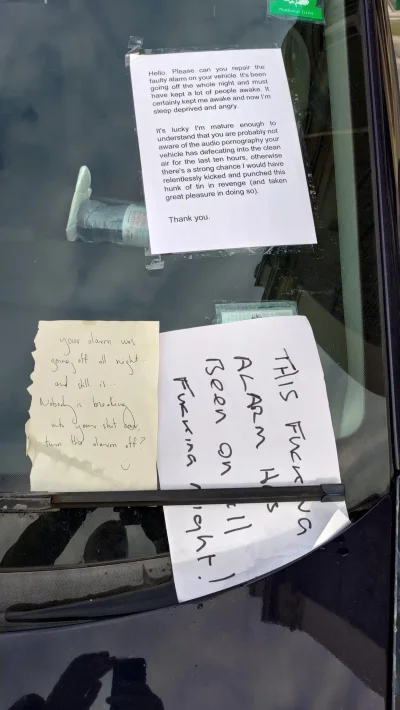 Hello. Please can you repair the
faulty alarm on your vehicle. It's been
going off the whole night and must
have kept a lot of people awake. It
certainly kept me awake and now I'm
sleep deprived and angry.
It's lucky I'm mature enough to
understand that you are probably not
aware of the audio pornography your
vehicle has defecating into the clean
air for the last ten hours, otherwise
there's a strong chance I would have
relentlessly kicked and punched this
hunk of tin in revenge (and taken
great pleasure in doing so).
Thank you.
your alarm was
going off all night
and still is..
Nobody is breaking
into your shit
turn the alarm off?
THIS FUCKING
ALARM HAS
BEEN ON All
FUCKING night!